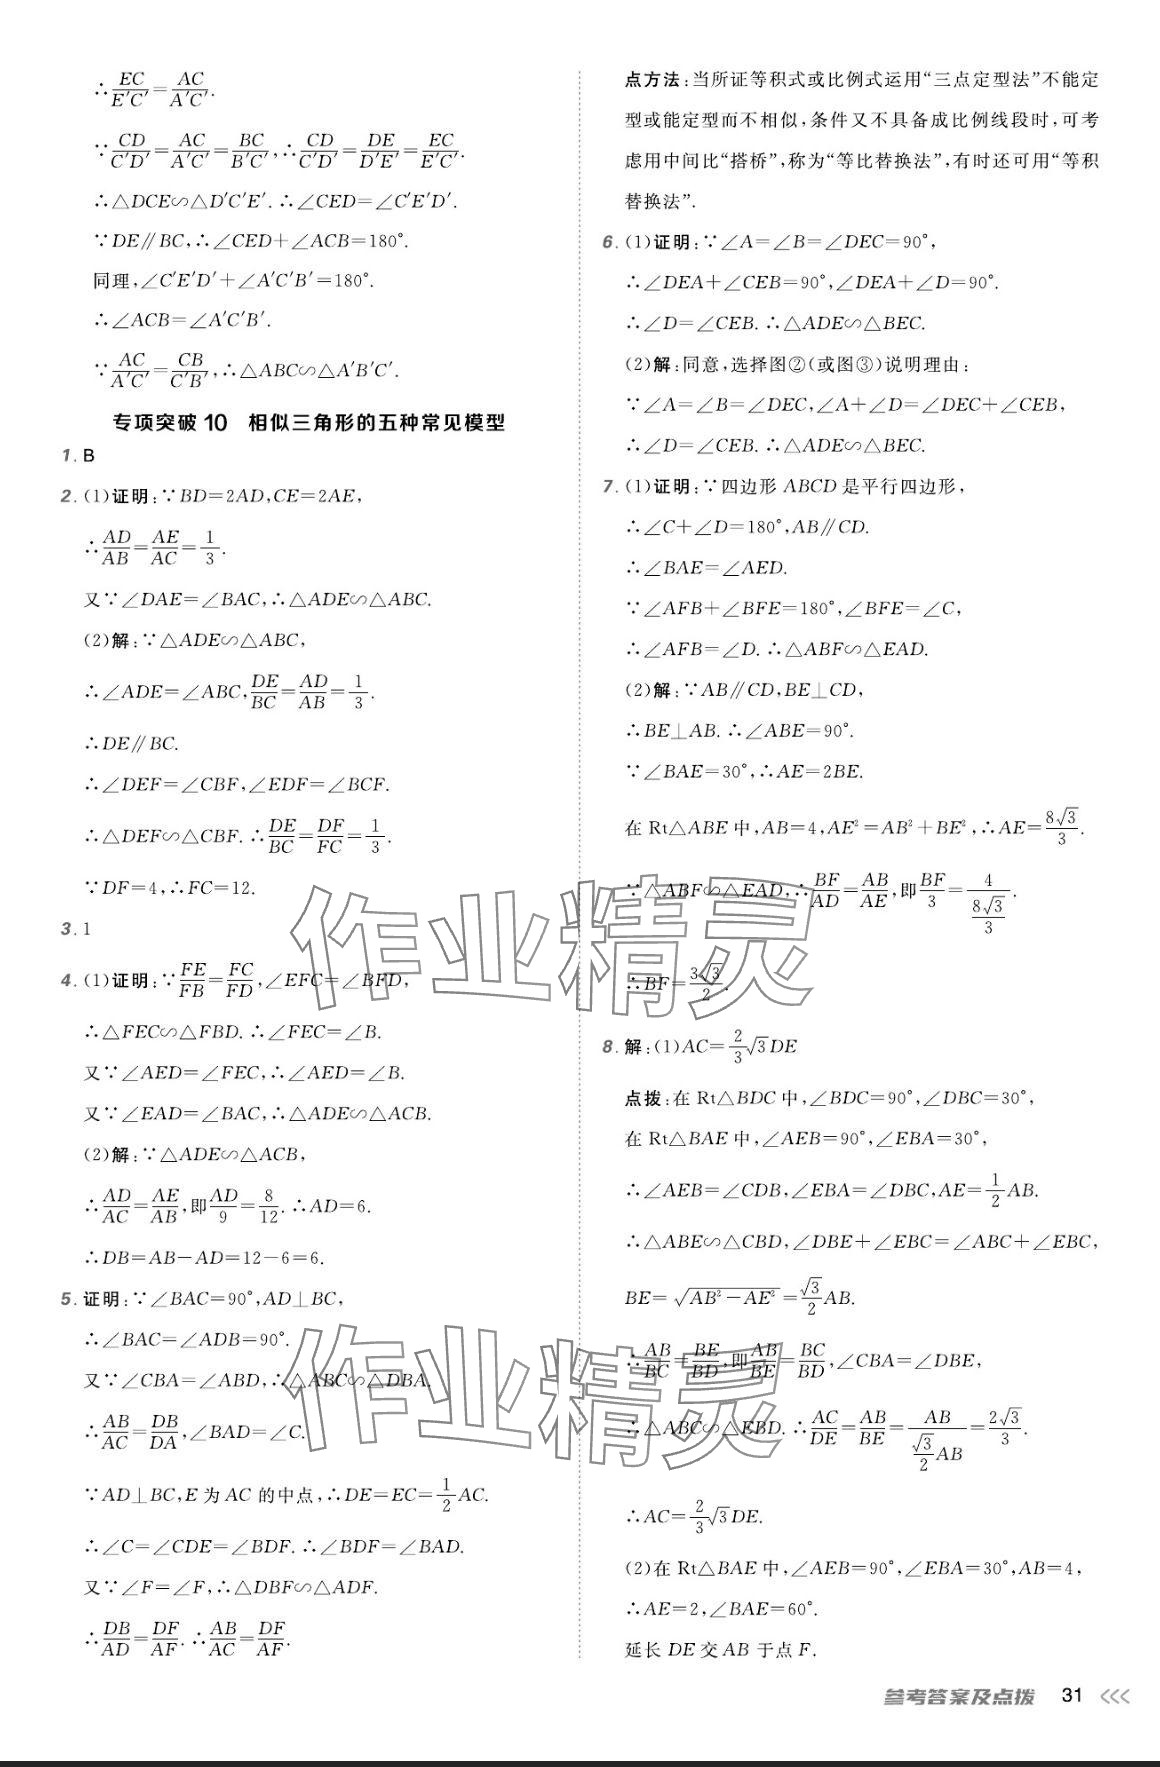 ∴EC/E′C′=AC/A′C′.
∵CD/C′D′=AC/A′C′=BC/B′C′,∴CD/C′D′=DE/D′E′=EC/E′C′.
∴△DCE∽△D′C′E′.∴∠CED=∠C′E′D′.
∵DE∥BC,∴∠CED+∠ACB=180°.
同理,∠C′E′D′+∠A′C′B′=180°.
∴∠ACB=∠A′C′B′.
∵AC/A′C′=CB/C′B′,∴△ABC∽△A′B′C′.
专项突破10 相似三角形的五种常见模型
1.B
2.(1)证明:∵BD=2AD,CE=2AE,
∴AD/AB=AE/AC=1/3.
又∵∠DAE=∠BAC,∴△ADE∽△ABC.
(2)解:∵△ADE∽△ABC,
∴∠ADE=∠ABC,DE/BC=AD/AB=1/3.
∴DE∥BC.
∴∠DEF=∠CBF,∠EDF=∠BCF.
∴△DEF∽△CBF.∴DE/BC=DF/FC=1/3.
∵DF=4,∴FC=12.
3.1
4.(1)证明:∵FE/FB=FC/FD,∠EFC=∠BFD,
∴△FEC∽△FBD.∴∠FEC=∠B.
又∵∠AED=∠FEC,∴∠AED=∠B.
又∵∠EAD=∠BAC,∴△ADE∽△ACB.
(2)解:∵△ADE∽△ACB,
∴AD/AC=AE/AB,即AD/9=8/12.∴AD=6.
∴DB=AB−AD=12−6=6.
5.证明:∵∠BAC=90°,AD⊥BC,
∴∠BAC=∠ADB=90°.
又∵∠CBA=∠ABD,∴△ABC∽△DBA.
∴AB/AC=DB/DA,∠BAD=∠C.
∵AD⊥BC,E为AC的中点,∴DE=EC=1/2AC.
∴∠C=∠CDE=∠BDF.∴∠BDF=∠BAD.
又∵∠F=∠F,∴△DBF∽△ADF.
∴DB/AD=DF/AF.∴AB/AC=DF/AF.
点方法:当所证等积式或比例式运用“三点定型法”不能定
型或能定型而不相似,条件又不具备成比例线段时,可考
虑用中间比“搭桥”,称为“等比替换法”,有时还可用“等积
替换法”.
6.(1)证明:∵∠A=∠B=∠DEC=90°,
∴∠DEA+∠CEB=90°,∠DEA+∠D=90°.
∴∠D=∠CEB.∴△ADE∽△BEC.
(2)解:同意,选择图②(或图③)说明理由:
∵∠A=∠B=∠DEC,∠A+∠D=∠DEC+∠CEB,
∴∠D=∠CEB.∴△ADE∽△BEC.
7.(1)证明:∵四边形ABCD是平行四边形,
∴∠C+∠D=180°,AB∥CD.
∴∠BAE=∠AED.
∵∠AFB+∠BFE=180°,∠BFE=∠C,
∴∠AFB=∠D.∴△ABF∽△EAD.
(2)解:∵AB∥CD,BE⊥CD,
∴BE⊥AB.∴∠ABE=90°.
∵∠BAE=30°,∴AE=2BE.
在Rt△ABE中,AB=4,AE²=AB²+BE²,∴AE=8√3/3.
∵△ABF∽△EAD,∴BF/AD=AB/AE,即BF/3=4/(8√3/3).
∴BF=3√3/2.
8.解:(1)AC=2/3√3DE
点拨:在Rt△BDC中,∠BDC=90°,∠DBC=30°,
在Rt△BAE中,∠AEB=90°,∠EBA=30°,
∴∠AEB=∠CDB,∠EBA=∠DBC,AE=1/2AB.
∴△ABE∽△CBD,∠DBE+∠EBC=∠ABC+∠EBC,
BE=√(AB²−AE²)=√3/2AB.
∴AB/BC=BE/BD,即AB/BE=BC/BD,∠CBA=∠DBE,
∴△ABC∽△EBD.∴AC/DE=AB/BE=AB/(√3/2AB)=2√3/3.
∴AC=2/3√3DE.
(2)在Rt△BAE中,∠AEB=90°,∠EBA=30°,AB=4,
∴AE=2,∠BAE=60°.
延长DE交AB于点F.
作业精灵
作业精灵
参考答案及点拨 31